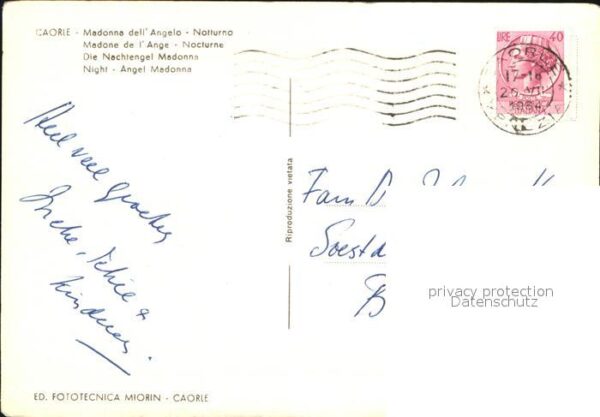 CAORLE - Madonna dell'Angelo - Notturno
Madone de l'Ange - Nocturne
Die Nachtengel Madonna
Night - Angel Madonna
LIRE 40
17-18
1964
Heel veel groeten
&
kinderen.
Riproduzione vietata
Fam
Soestd
B
privacy protection
Datenschutz
ED. FOTOTECNICA MIORIN - CAORLE